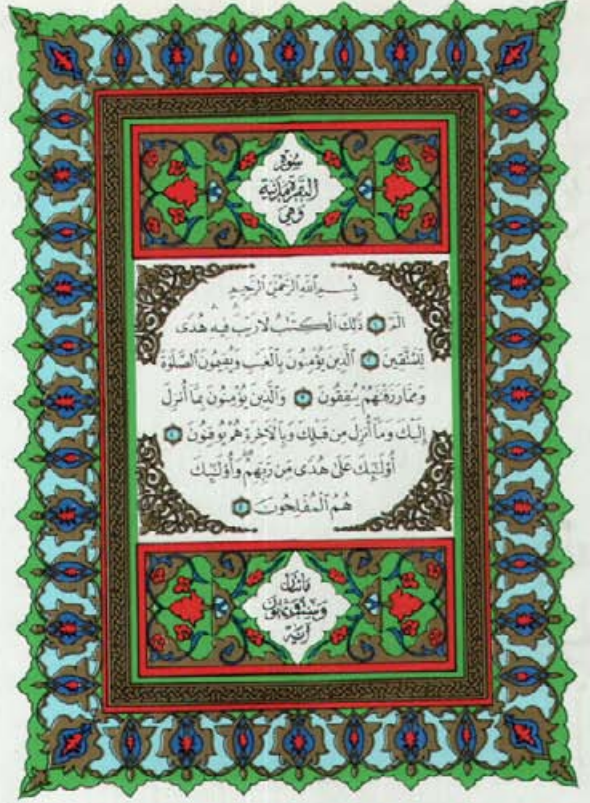 سُورَةُ
البَقَرَةِ مَدَنِيَّة
وَهِيَ
بِسْمِ ٱللَّهِ ٱلرَّحْمَٰنِ ٱلرَّحِيمِ
الٓمٓ ١ ذَٰلِكَ ٱلْكِتَٰبُ لَا رَيْبَ فِيهِ هُدًى
لِّلْمُتَّقِينَ ٢ ٱلَّذِينَ يُؤْمِنُونَ بِٱلْغَيْبِ وَيُقِيمُونَ ٱلصَّلَوٰةَ
وَمِمَّا رَزَقْنَٰهُمْ يُنفِقُونَ ٣ وَٱلَّذِينَ يُؤْمِنُونَ بِمَآ أُنزِلَ
إِلَيْكَ وَمَآ أُنزِلَ مِن قَبْلِكَ وَبِٱلْءَاخِرَةِ هُمْ يُوقِنُونَ ٤
أُو۟لَٰٓئِكَ عَلَىٰ هُدًى مِّن رَّبِّهِمْ وَأُو۟لَٰٓئِكَ
هُمُ ٱلْمُفْلِحُونَ ٥
مِائتان
وَسِتٌّ وَثَمَانُونَ
آيَة